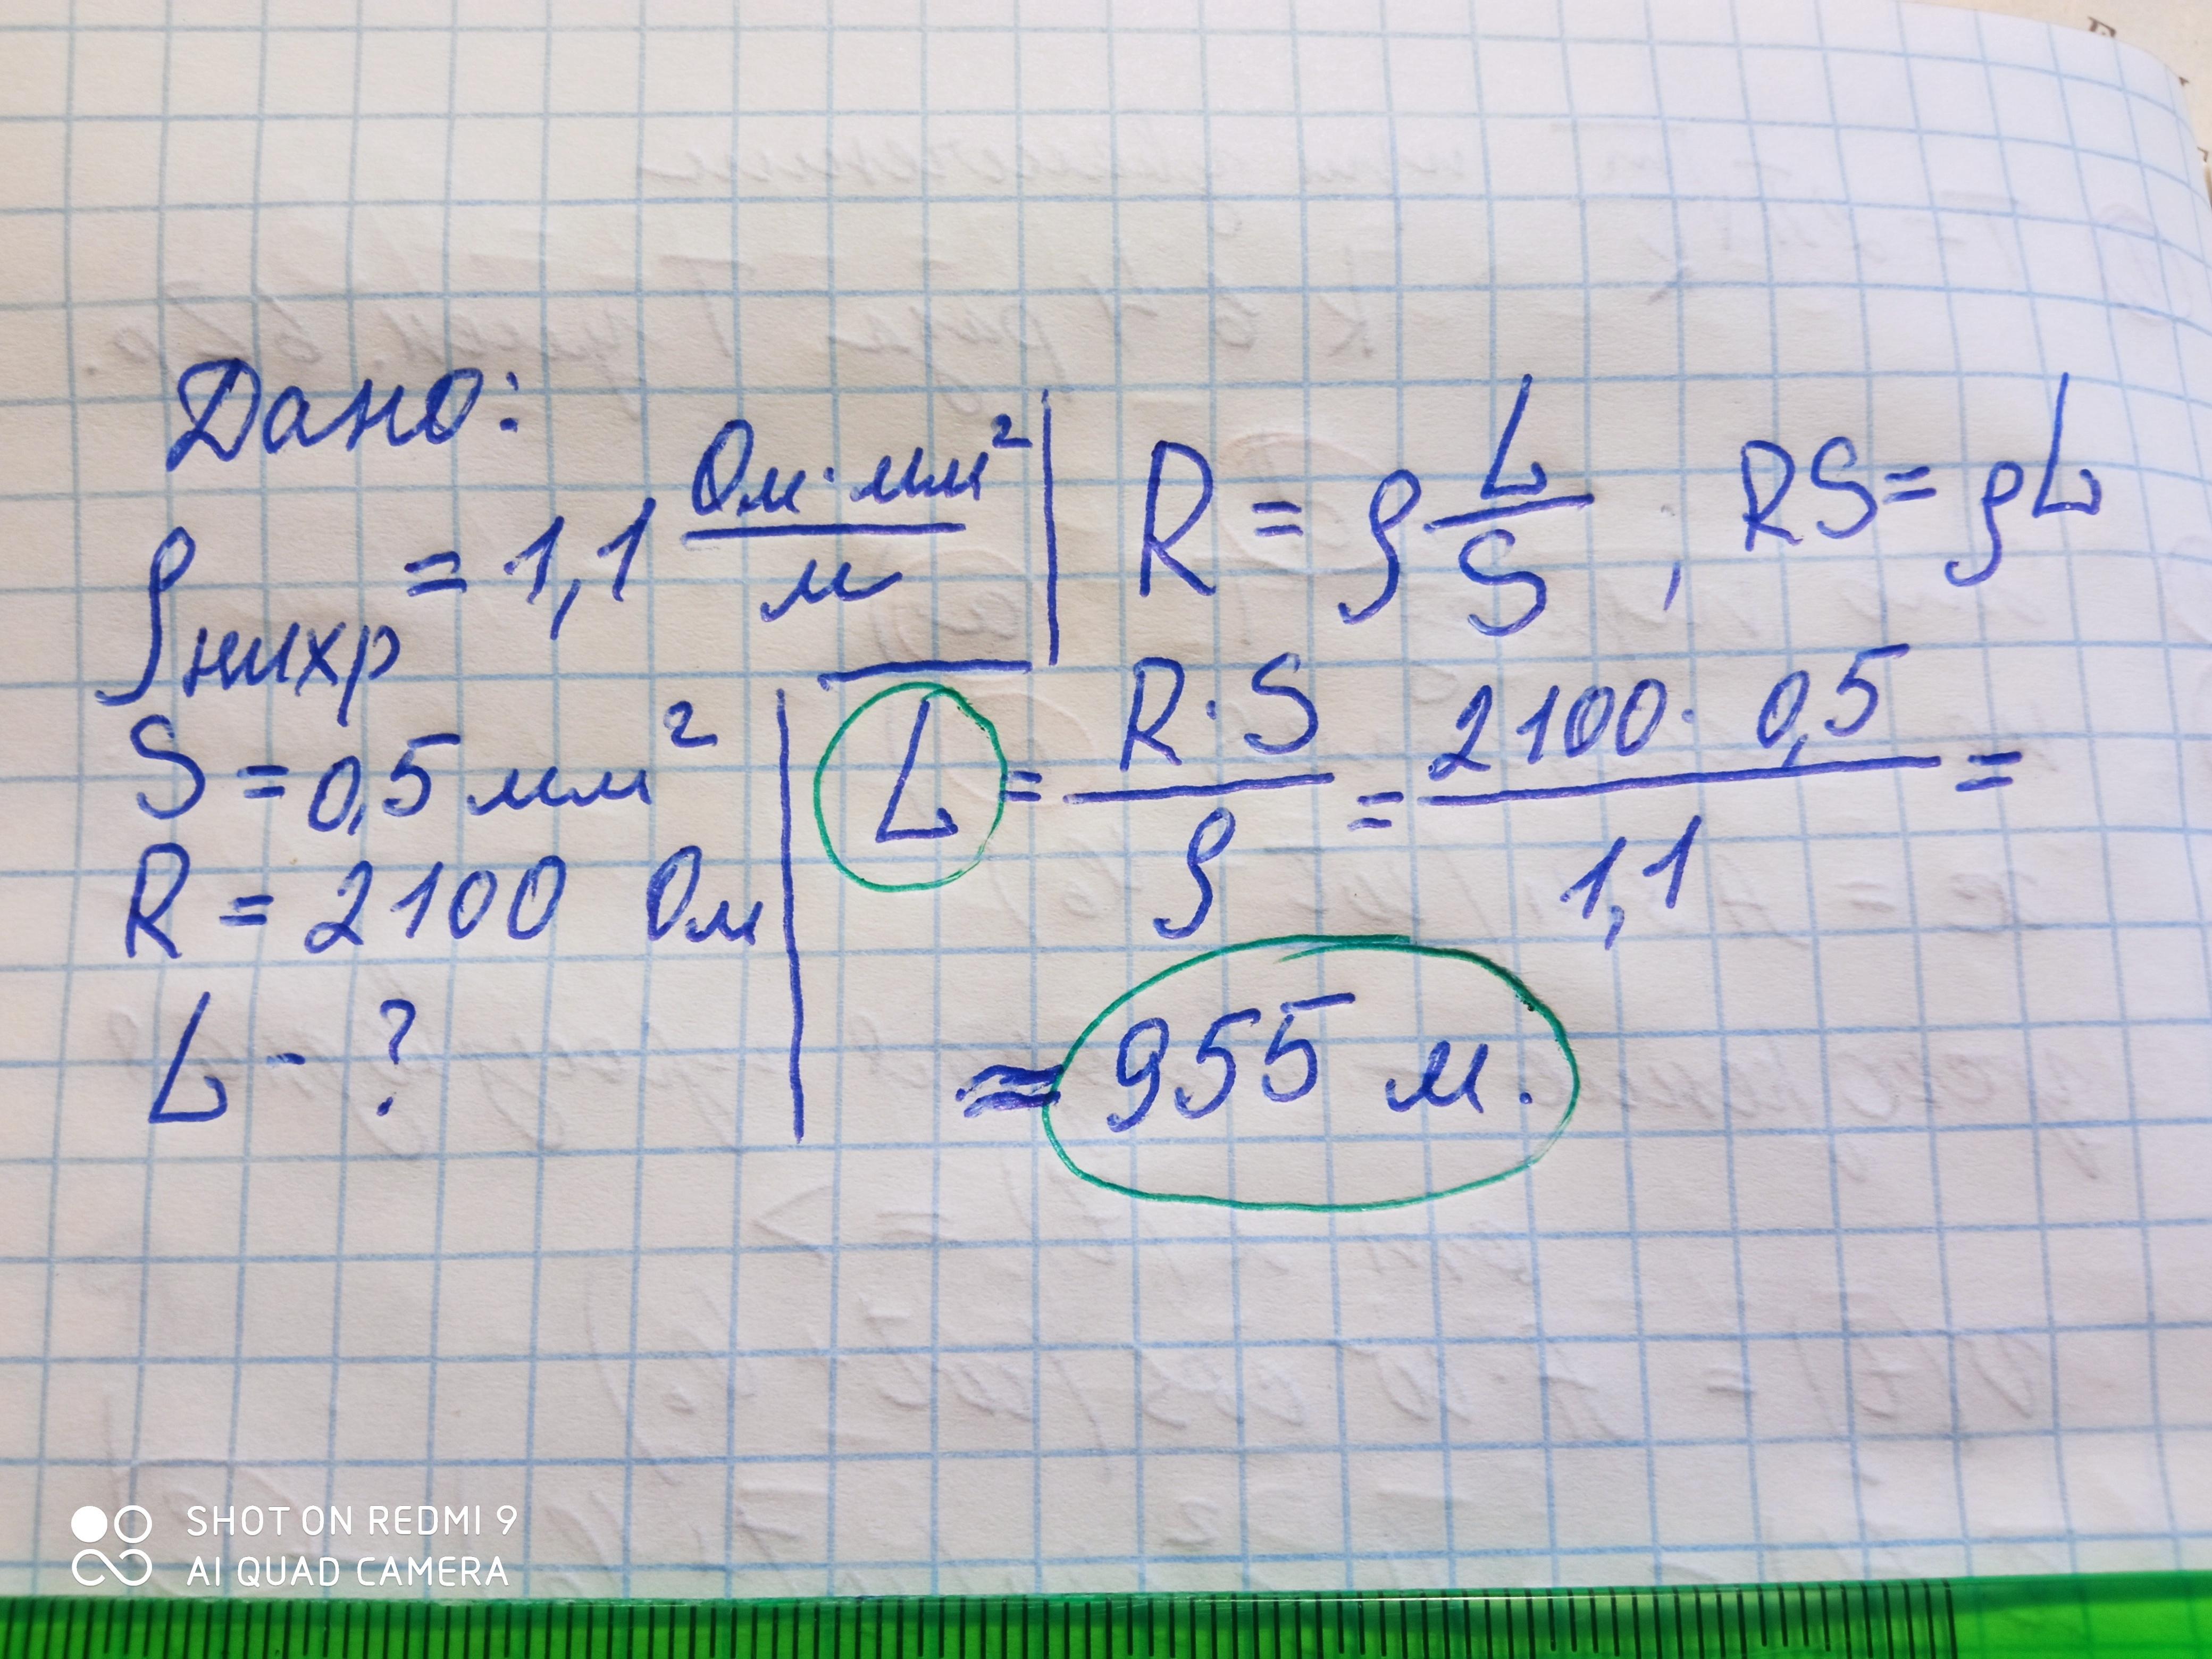 Дано:
ρнихр = 1,1 Ом·мм²/м
S = 0,5 мм²
R = 2100 Ом
L - ?
R = ρ L/S ; RS = ρL
L = R·S/ρ = 2100· 0,5/1,1 =
≈ 955 м.
SHOT ON REDMI 9
AI QUAD CAMERA